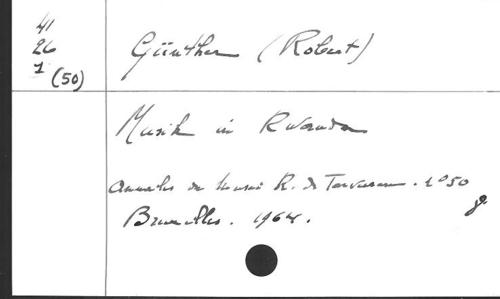 41
26
1 (50)
Günther (Robert)
Musik in Rwanda
Annales du Musée R. de Tervuren. n° 50
Bruxelles. 1964.